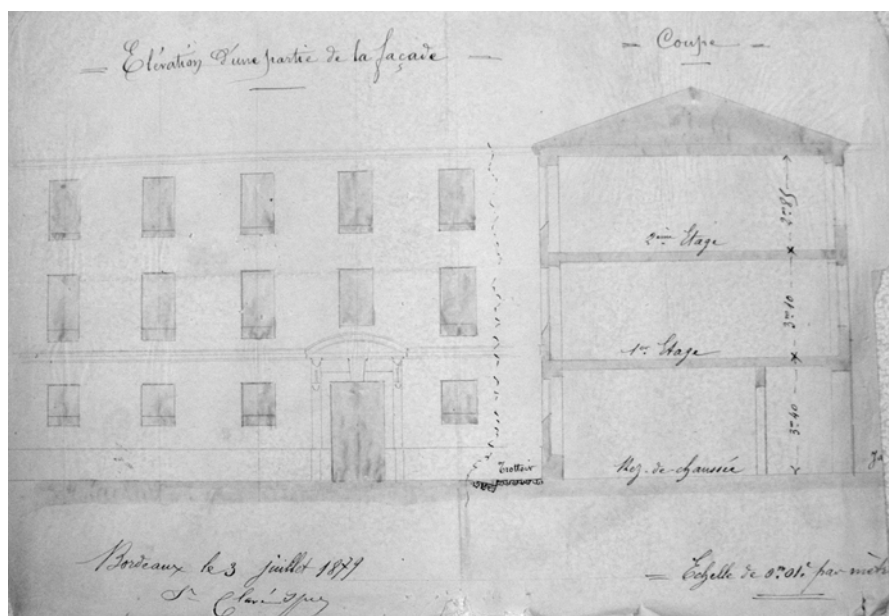 Elévation d'une partie de la façade
Coupe
2m85
2ème Etage
3m10
1er Etage
3m40
Rez-de-chaussée
Trottoir
Bordeaux le 3 juillet 1879
Echelle de 0m01c par mètr